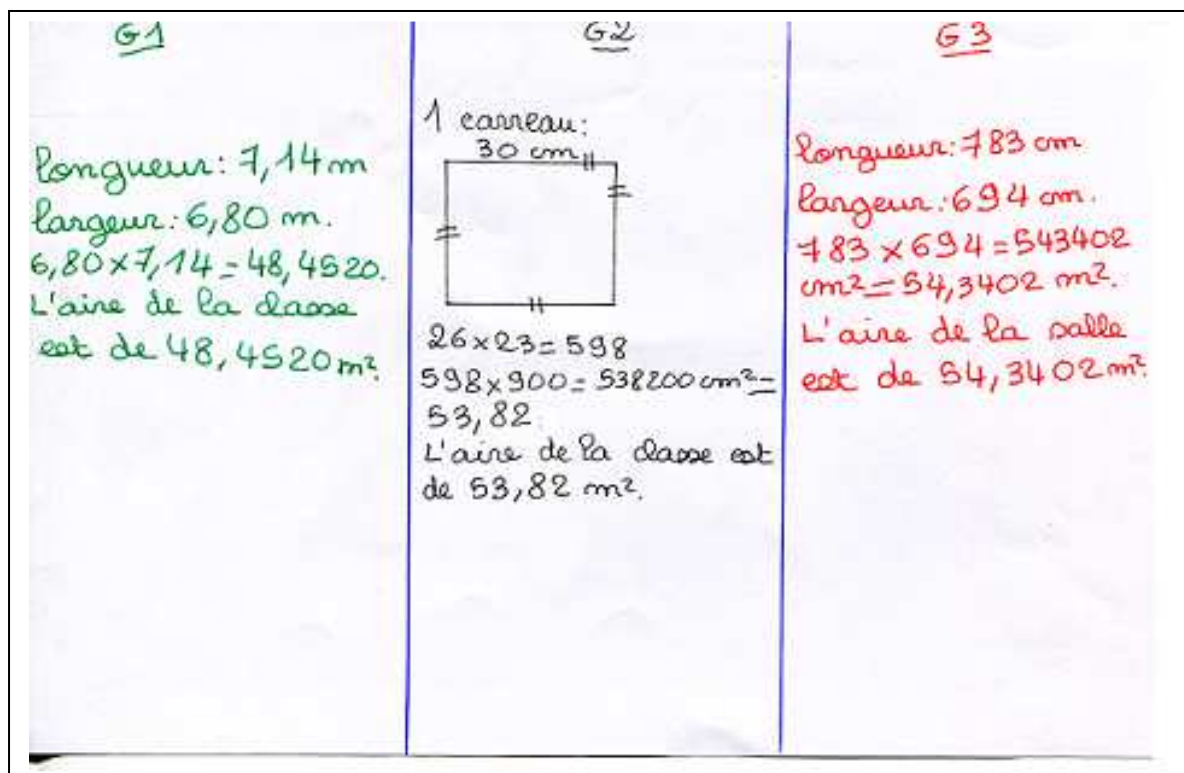 G1
longueur: 7,14 m
largeur: 6,80 m.
6,80 x 7,14 = 48,4520.
L'aire de la classe
est de 48,4520 m².
G2
1 carreau:
30 cm
26 x 23 = 598
598 x 900 = 538200 cm² =
53,82
L'aire de la classe est
de 53,82 m².
G3
longueur: 783 cm
largeur: 694 cm.
783 x 694 = 543402
cm² = 54,3402 m².
L'aire de la salle
est de 54,3402 m².